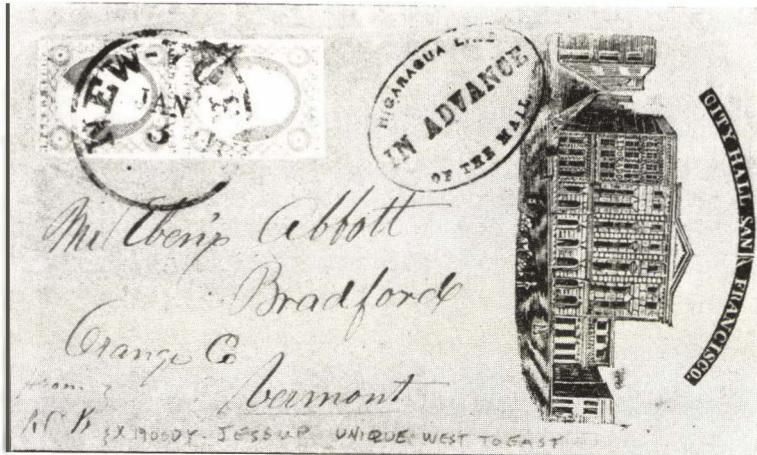 NEW-YO
JAN
3
NICARAGUA LINE
IN ADVANCE
OF THE MAILS
CITY HALL SAN FRANCISCO.
Abbott
Bradford
Orange Co
Vermont
EX MOODY - JESSUP UNIQUE WEST TO EAST